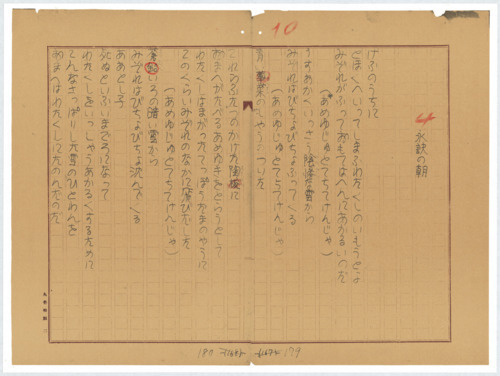 10
4
永訣の朝
けふのうちに
とほくへいってしまふわたくしのいもうとよ
みぞれがふっておもてはへんにあかるいのだ
(あめゆじゅとてちてけんじゃ)
うすあかくいっさう陰惨な雲から
みぞれはびちょびちょふってくる
(あめゆじゅとてちてけんじゃ)
青い蓴菜のもやうのついた
これらふたつのかけた陶椀に
おまへがたべるあめゆきをとらうとして
わたくしはまがったてっぽうだまのやうに
このくらいみぞれのなかに飛びだした
(あめゆじゅとてちてけんじゃ)
蒼鉛いろの暗い雲から
みぞれはびちょびちょ沈んでくる
ああとし子
死ぬといふいまごろになって
わたくしをいっしゃうあかるくするために
こんなさっぱりした雪のひとわんを
おまへはわたくしにたのんだのだ
180
179